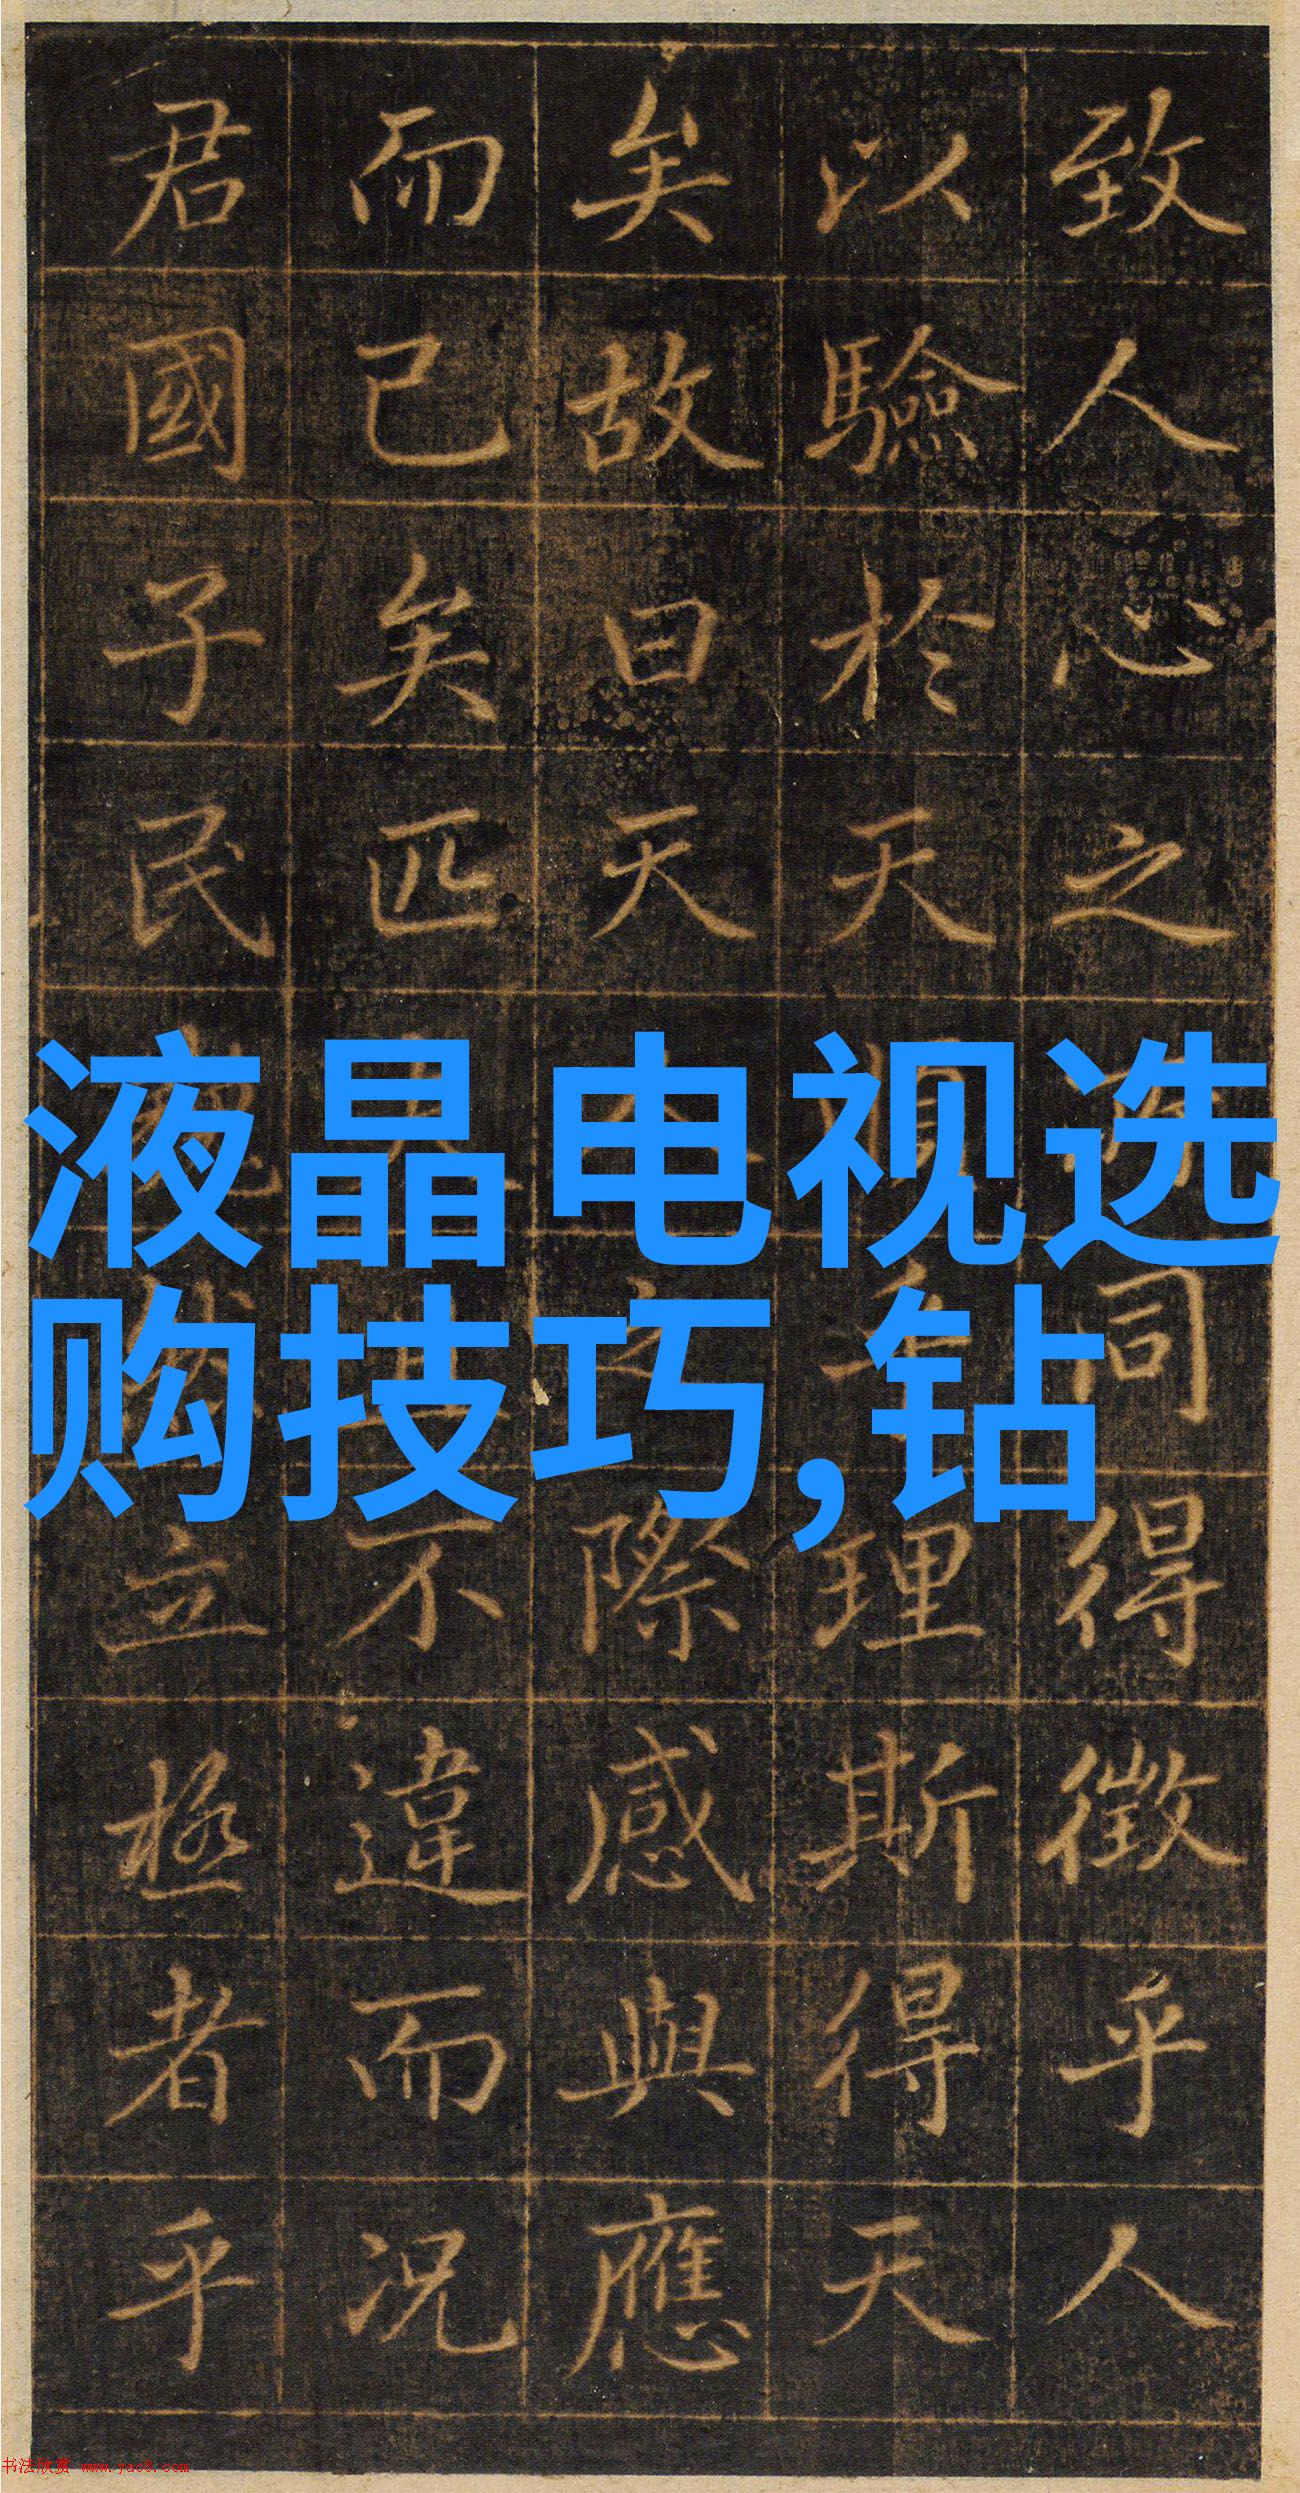 致人心之同得徵乎人
以驗於天順乎理斯得天
矣故曰天人之際感與應
而已矣匹且不違而況
君國子民巍然立極者乎
液晶电视选
购技巧,钻
书法欣赏 www.yac8.com